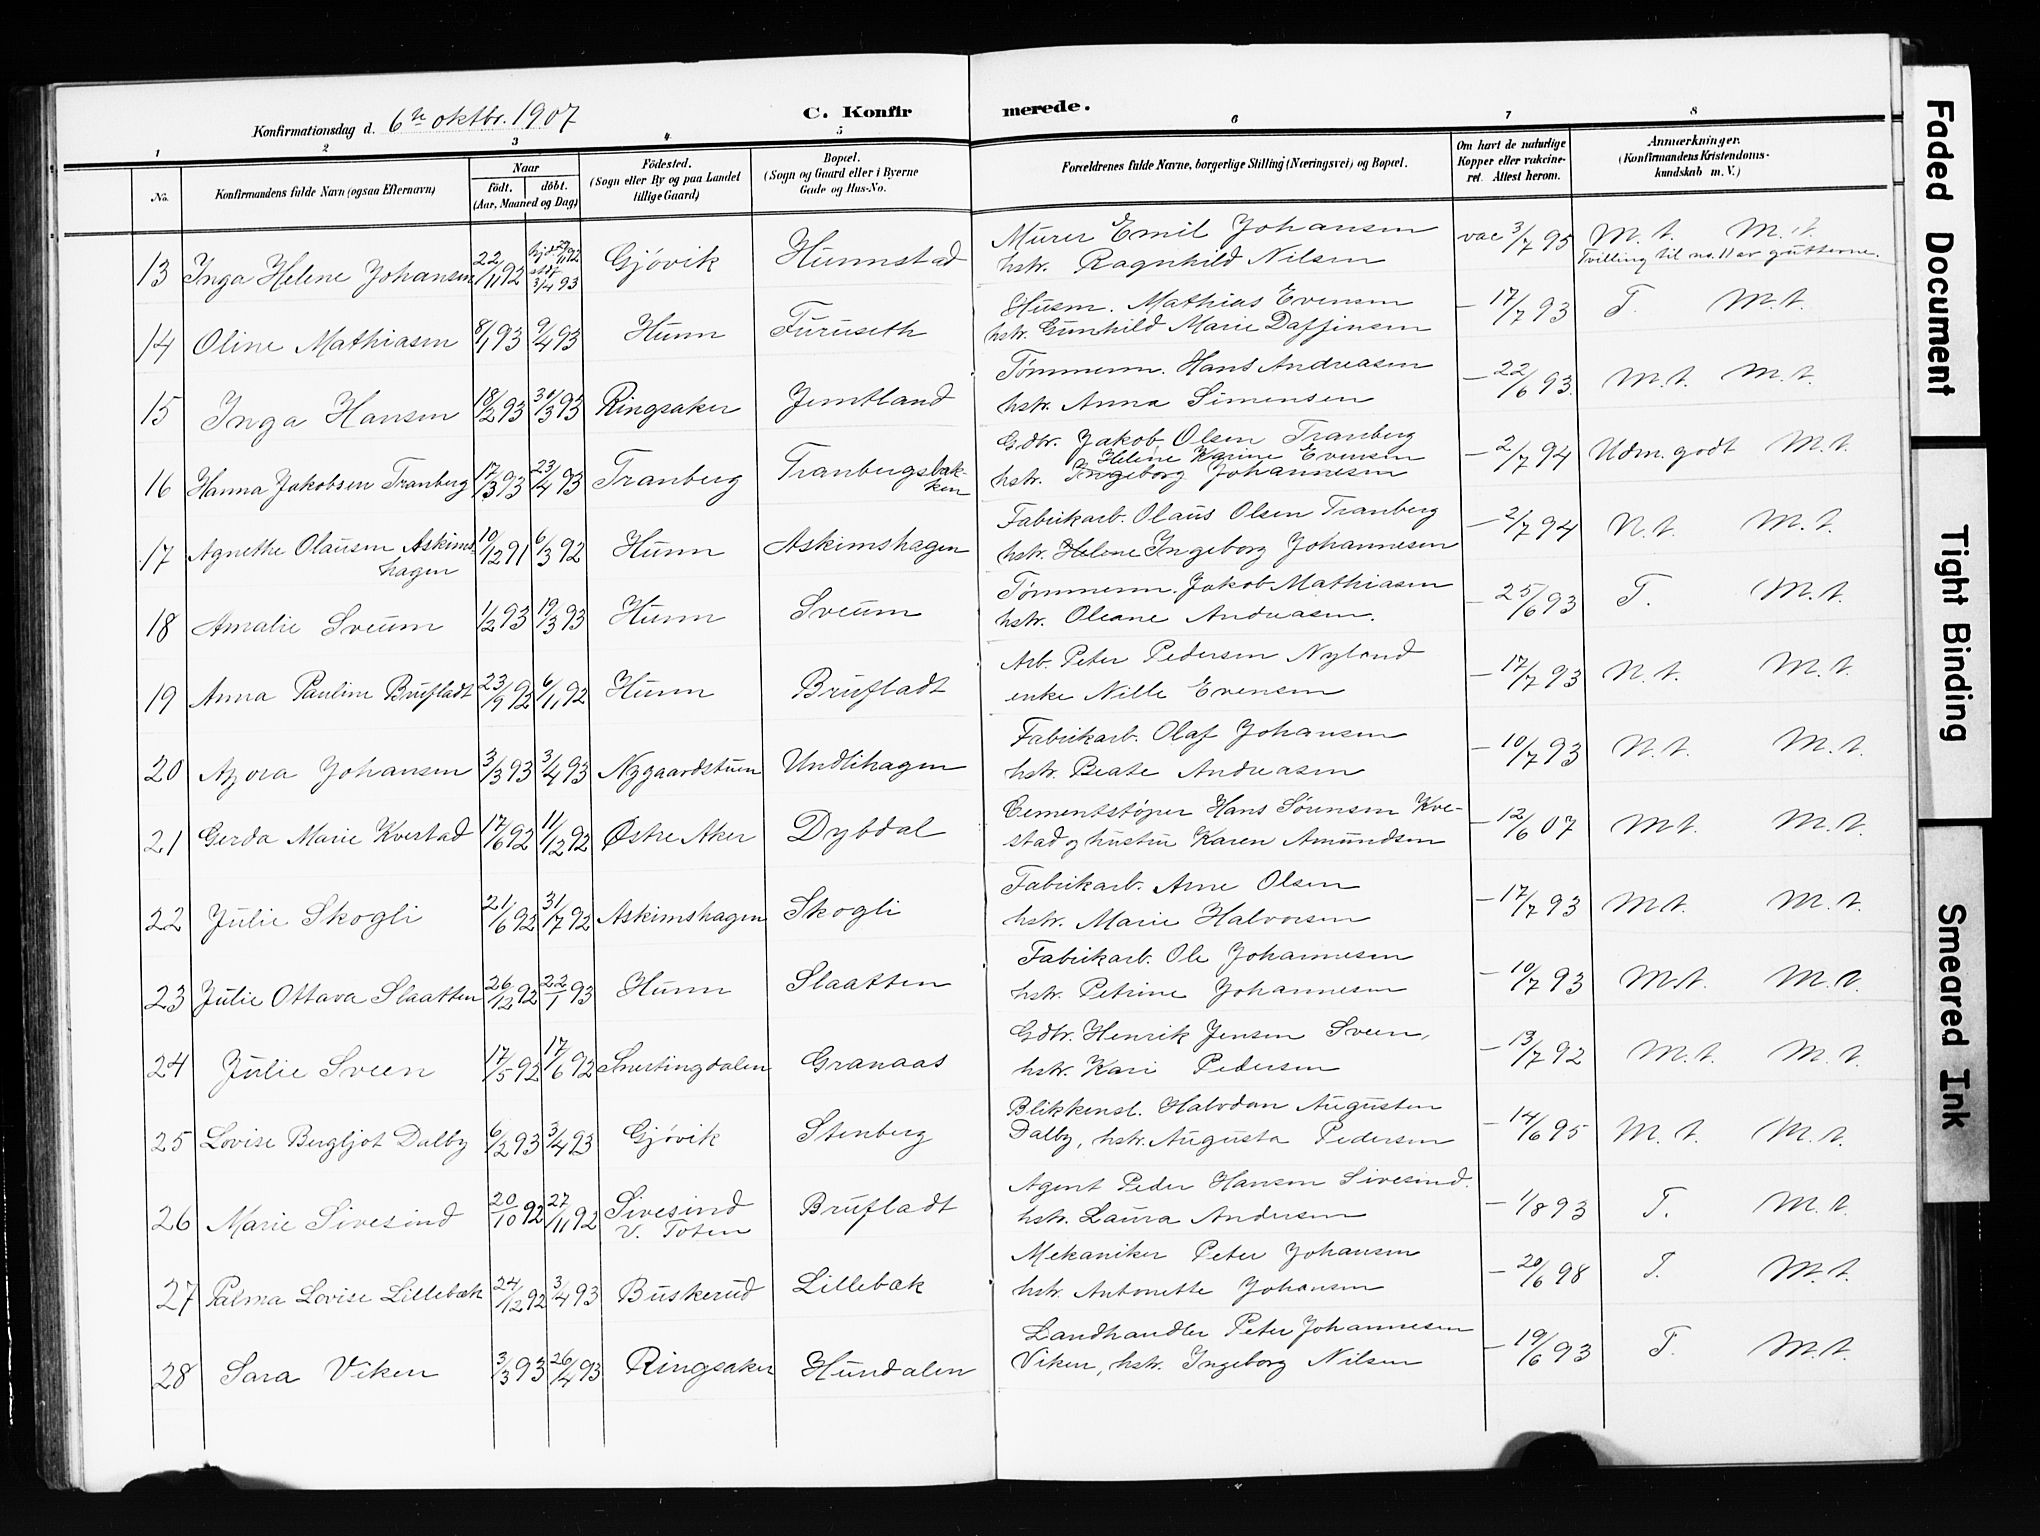 Konfirmationsdag d. 6te oktbr. 1907
C. Konfirmerede.
1 2 3 4 5 6 7 8
No. Konfirmandens fulde Navn (ogsaa Efternavn) Naar födt. döbt. (Aar, Maaned og Dag) Födested. (Sogn eller By og paa Landet tillige Gaard) Bopæl. (Sogn og Gaard eller i Byerne Gade og Hus-No. Forældrenes fulde Navne, borgerlige Stilling (Næringsvei) og Bopæl. Om havt de naturlige Kopper eller vakcineret. Attest herom. Anmærkninger. (Konfirmandens Kristendomskundskab m. V.)
13 Inga Helene Johansen 22/11 92 hjd. 29/11 92 stdf. 3/4 93 Gjøvik Hunnstad Murer Emil Johansen vac 3/7 95 M. t. M. t.
hstr. Ragnhild Nilsen Tvilling til no. 11 av gutterne.
14 Oline Mathiasen 8/1 93 9/4 93 Hunn Furuseth Husm. Mathias Evensen – 17/7 93 T. M. t.
hstr. Gunhild Marie Daffinsen
15 Inga Hansen 18/2 93 31/3 93 Ringsaker Jemtland Tømmerm. Hans Andreasen – 22/6 93. M. t. M. t.
hstr. Anna Simensen
16 Hanna Jakobsen Tranberg 17/3 93 23/4 93 Tranberg Tranbergsbak- Gdbr. Jakob Olsen Tranberg – 2/7 94 Udm. godt M. t.
ken Helene Karine Evensen
hstr. Ingeborg Johannesen
17 Agnethe Olausen Askims- 10/12 91 6/3 92 Hunn Askimshagen Fabrikarb. Olaus Olsen Tranberg – 2/7 94 N. t. M. t.
hagen hstr. Helene Ingeborg Johannesen
18 Amalie Sveum 1/2 93 19/3 93 Hunn Sveum Tømmerm. Jakob Mathiasen – 25/6 93 T. M. t.
hstr. Oleane Andreasen.
19 Anna Pauline Brufladt 23/9 92 6/11 92 Hunn Brufladt Arb. Peter Pedersen Nyland – 17/7 93 N. t. M. t.
enke Nille Evensen
20 Azora Johansen 3/3 93 3/4 93 Nygaardstuen Undlihagen Fabrikarb. Olaf Johansen – 10/7 93 N. t. M. t.
hstr. Beate Andreasen
21 Gerda Marie Kvestad 17/6 92 11/12 92 Østre Aker Dybdal Cementstøper Hans Sørensen Kve- – 12/6 07 M t. M. t.
stad og hustru Karen Amundsen
22 Julie Skogli 21/6 92 31/7 92 Askimshagen Skogli Fabrikarb. Arne Olsen – 17/7 93 M t. M. t.
hstr. Marie Halvorsen
23 Julie Ottava Slaatten 26/12 92 22/1 93 Hunn Slaatten Fabrikarb. Ole Johannesen – 10/7 93 M. t. M. t.
hstr. Petrine Johannesen
24 Julie Sveen 17/5 92 17/6 92 Snertingdalen Granaas Gdbr. Henrik Jensen Sveen, – 13/7 92 M. t. M. t.
hstr. Kari Pedersen
25 Lovise Bergljot Dalby 6/2 93 3/4 93 Gjøvik Stenberg Blikkensl. Halvdan Augusten – 14/6 95 M. t. M. t.
Dalby, hstr. Augusta Pedersen
26 Marie Sivesind 20/10 92 27/11 92 Sivesind Brufladt Agent Peder Hansen Sivesind. – 1/8 93 T. M. t.
V. Toten hstr. Laura Andersen
27 Palma Lovise Lillebæk 24/12 92 3/4 93 Buskerud Lillebæk Mekaniker Peter Johansen – 20/6 98 T. M. t.
hstr. Antonette Johansen
28 Sara Viken 3/3 93 26/4 93 Ringsaker Hundalen Landhandler Peter Johannesen – 19/6 93 T. M. t.
Viken, hstr. Ingeborg Nilsen
Faded Document
Tight Binding
Smeared Ink